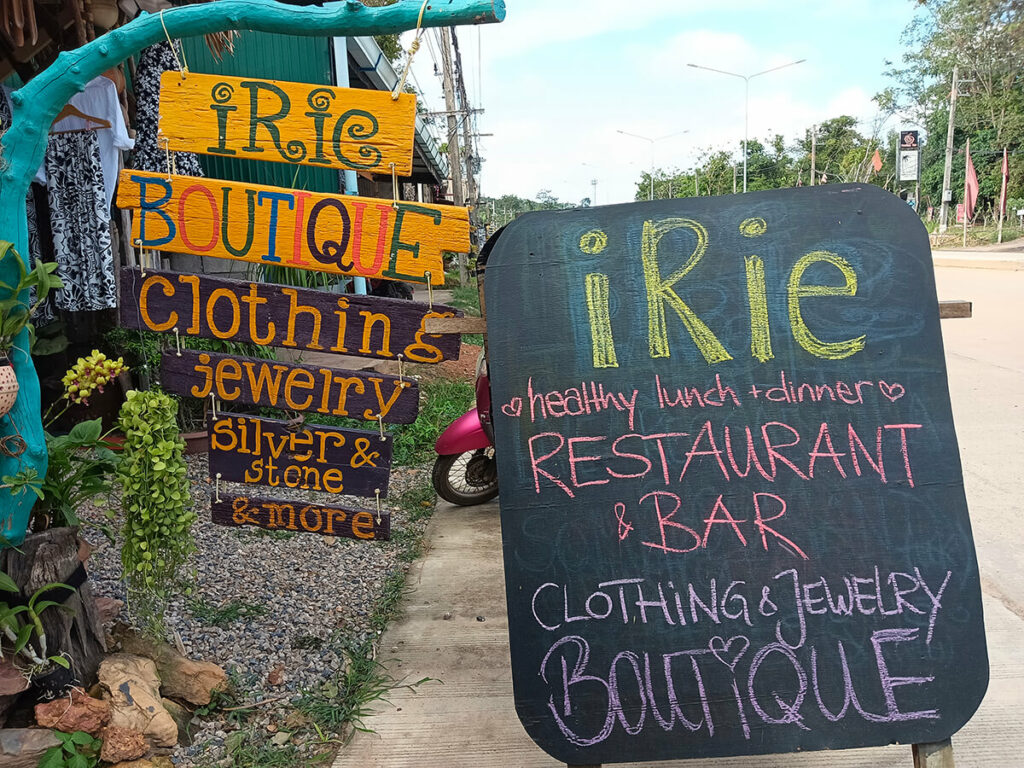 iRie
BOUTIQUE
clothing
jewelry
silver &
stone
& more
iRie
healthy lunch + dinner
RESTAURANT
& BAR
CLOTHING & JEWELRY
BOUTIQUE